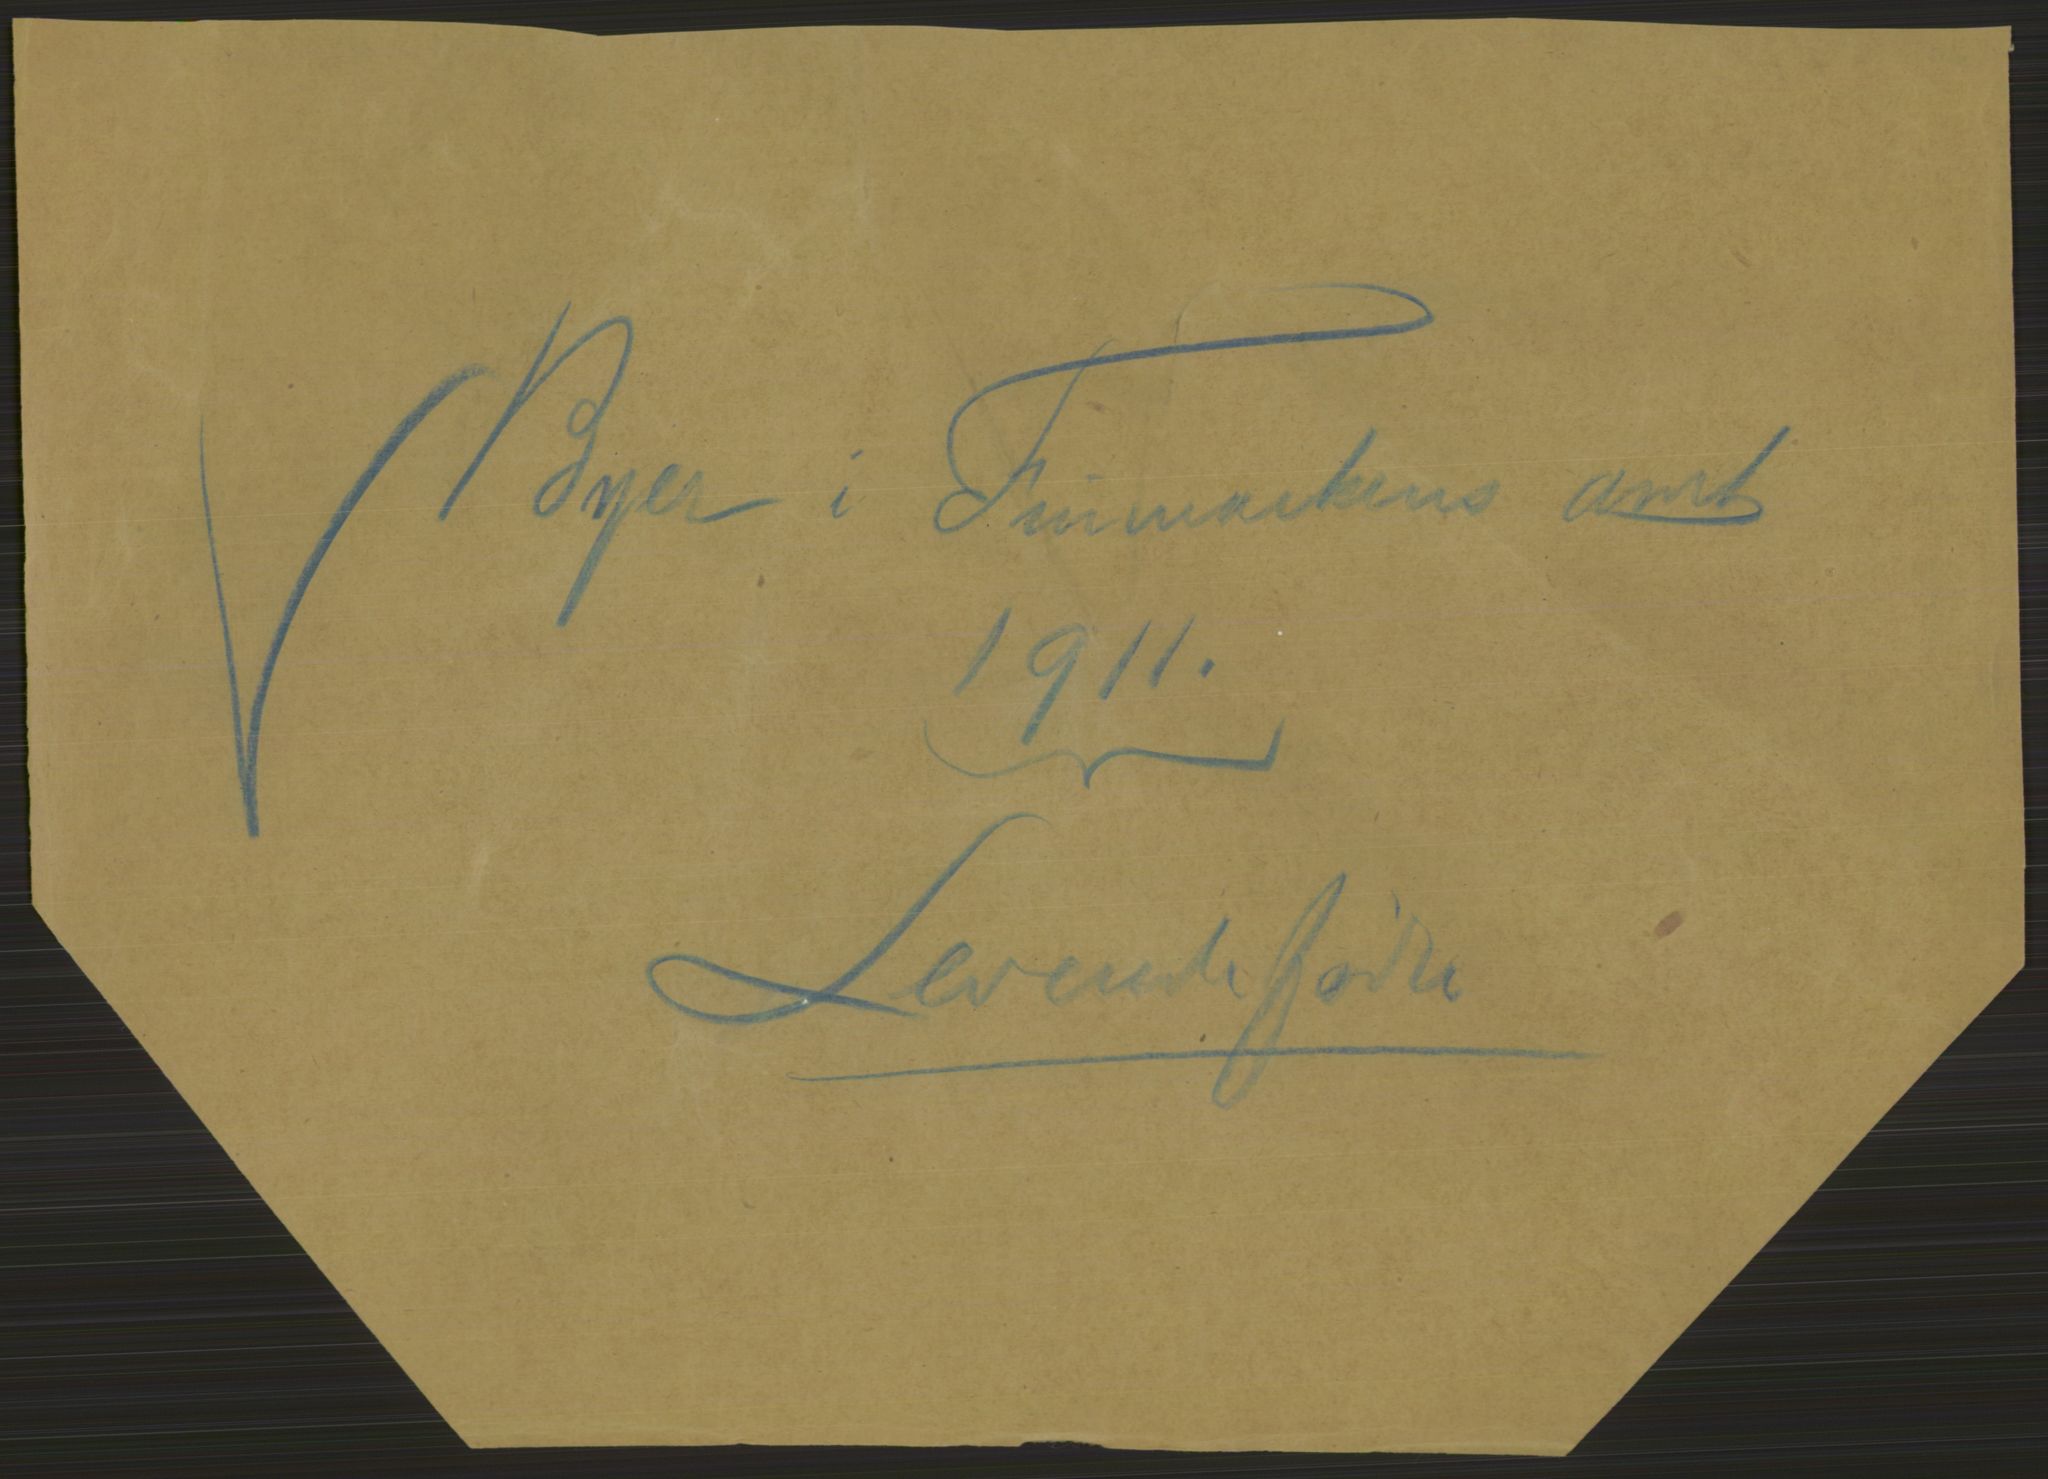 Byer i Finmarkens amt
1911.
Levende fødte